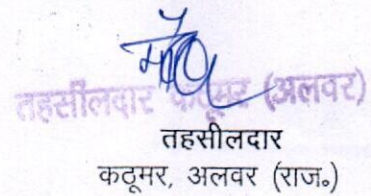 तहसीलदार कठूमर (अलवर)
तहसीलदार
कठूमर, अलवर (राज॰)